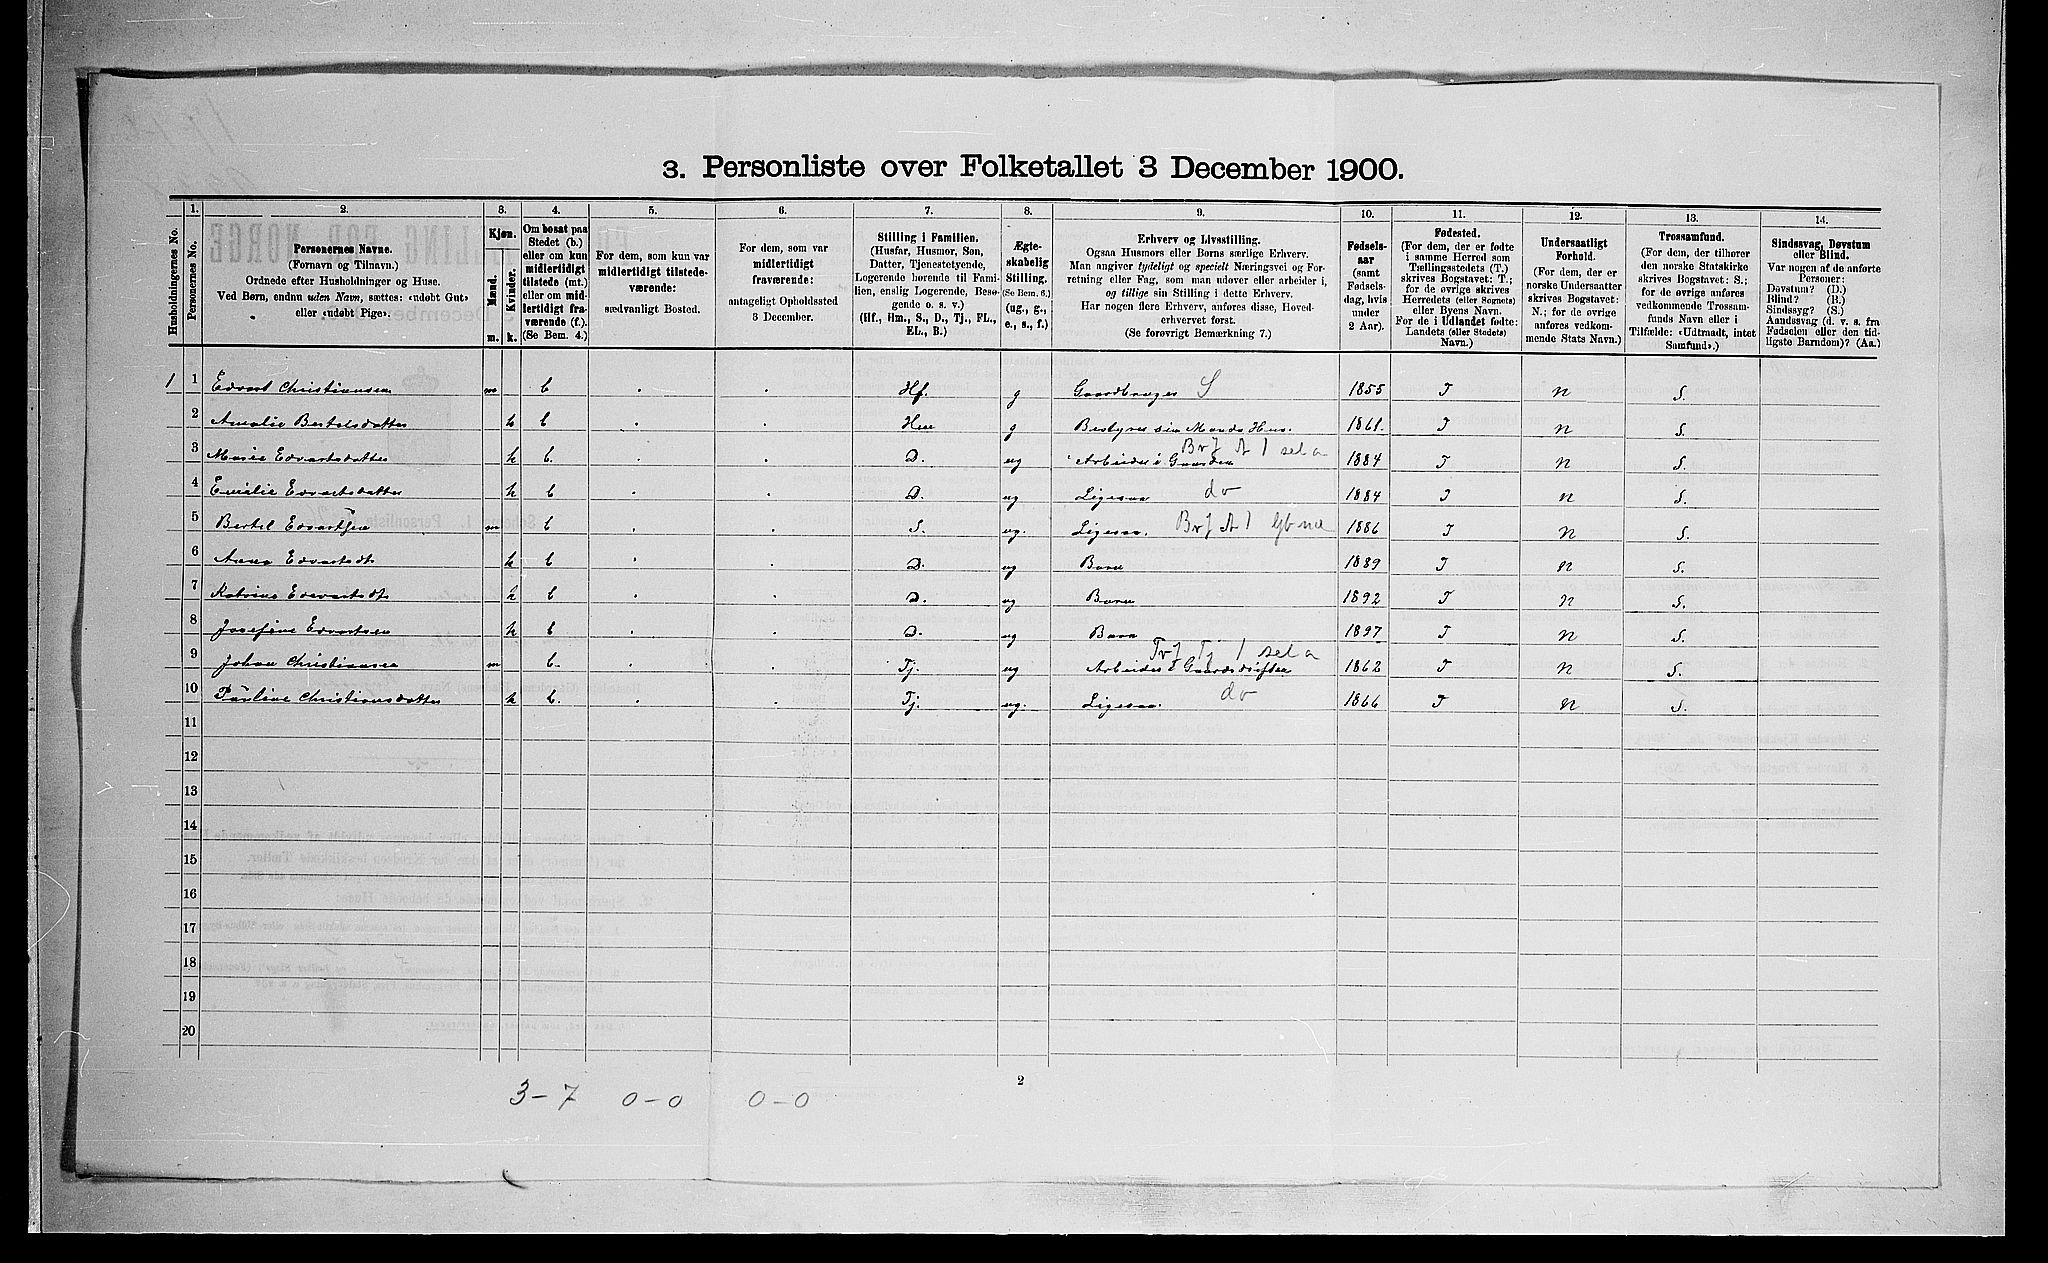 3. Personliste over Folketallet 3 December 1900.
Husholdningernes No.
1.
Personernes No.
2.
Personernes Navne.
(Fornavn og Tilnavn.)
Ordnede efter Husholdninger og Huse.
Ved Børn, endnu uden Navn, sættes: «udøbt Gut»
eller «udøbt Pige».
3.
Kjøn.
Mænd.
Kvinder.
m. k.
4.
Om bosat paa
Stedet (b.)
eller om kun
midlertidigt
tilstede (mt.)
eller om mid-
lertidigt fra-
værende (f.).
(Se Bem. 4.)
5.
For dem, som kun var
midlertidigt tilstede-
værende:
sædvanligt Bosted.
6.
For dem, som var
midlertidigt
fraværende:
antageligt Opholdssted
3 December.
7.
Stilling i Familien.
(Husfar, Husmor, Søn,
Datter, Tjenestetyende,
Logerende hørende til Fami-
lien, enslig Logerende, Besø-
gende o. s. v.)
(Hf., Hm., S., D., Tj., FL.,
EL., B.)
8.
Ægte-
skabelig
Stilling.
(Se Bem. 6.)
(ug., g.,
e., s., f.)
9.
Erhverv og Livsstilling.
Ogsaa Husmors eller Børns særlige Erhverv.
Man angiver tydeligt og specielt Næringsvei og For-
retning eller Fag, som man udøver eller arbeider i,
og tillige sin Stilling i dette Erhverv.
Har nogen flere Erhverv, anføres disse, Hoved-
erhvervet først.
(Se forøvrigt Bemærkning 7.)
10.
Fødsels-
aar
(samt
Fødsels-
dag, hvis
under
2 Aar).
11.
Fødested.
(For dem, der er fødte
i samme Herred som
Tællingsstedets (T.)
skrives Bogstavet: T.;
for de øvrige skrives
Herredets (eller Sognets)
eller Byens Navn.
For de i Udlandet fødte:
Landets (eller Stedets)
Navn.)
12.
Undersaatligt
Forhold.
(For dem, der er
norske Undersaatter
skrives Bogstavet:
N.; for de øvrige
anføres vedkom-
mende Stats Navn.)
13.
Trossamfund.
(For dem, der tilhører
den norske Statskirke
skrives Bogstavet: S.;
for de øvrige anføres
vedkommende Trossam-
funds Navn eller i
Tilfælde: «Udtraadt, intet
Samfund».)
14.
Sindssvag, Døvstum
eller Blind.
Var nogen af de anførte
Personer:
Døvstum? (D.)
Blind? (B.)
Sindssyg? (S.)
Aandssvag (d. v. s. fra
Fødselen eller den tid-
ligste Barndom)? (Aa.)
1 1 Edvart Christiansen m b Hf. g Gaardbruger S 1855 T N S.
2 Amalie Bertelsdatter k b g Bestyrer sin Mands Hus. 1861. T N S.
Brf A 1 sel a
3 Marie Edvartsdatter k b. D. ug Arbeider i Gaarden 1884 T N S.
4 Emilie Edvartsdatter k b D. ug Ligesaa do 1884 T N S.
5 Bertel Edvartsen m b S. ug. Ligesaa. Brf A 1 1886 T N S.
6 Anna Edvartsdt k b D. ug Barn 1889 T N S.
7 Katrine Edvartsdt k b D. ug Barn 1892 T N S.
8 Josefine Edvartsen k b D. ug Barn 1897 T N S.
Trf Tj 1 sel a
9 Johan Christiansen m b. Tj. ug Arbeider i Gaardsdriften 1862 T N S.
10 Pauline Christiansdatter k b. Tj. ug. Ligesaa. do 1866 T N S.
11
12
13
14
15
16
17
18
19
20
2
3-7 0-0 0-0